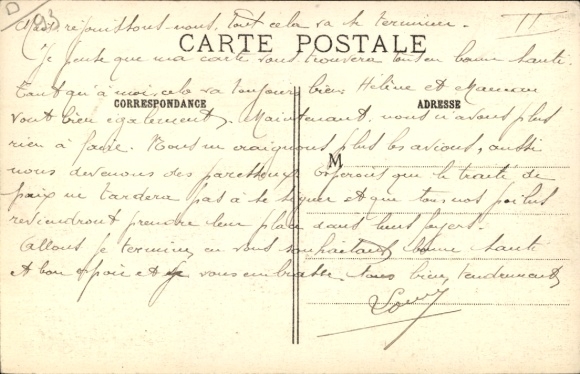 réjouissons-nous, tout cela va se terminer. II
CARTE POSTALE
Je pense que ma carte vous trouvera tous en bonne santé.
Tant qu'à moi, cela va toujours bien. Hélène et Maman
CORRESPONDANCE ADRESSE
vont bien également. Maintenant, nous n'avons plus
rien à faire. Nous ne craignons plus les avions, aussi
nous devenons des paresseux. Espérons que le traité de
M
paix ne tardera pas à se signer et que tous nos poilus
reviendront prendre leur place dans leurs foyers.
Allons je termine en vous souhaitant bonne santé
et bon espoir et je vous embrasse tous bien tendrement